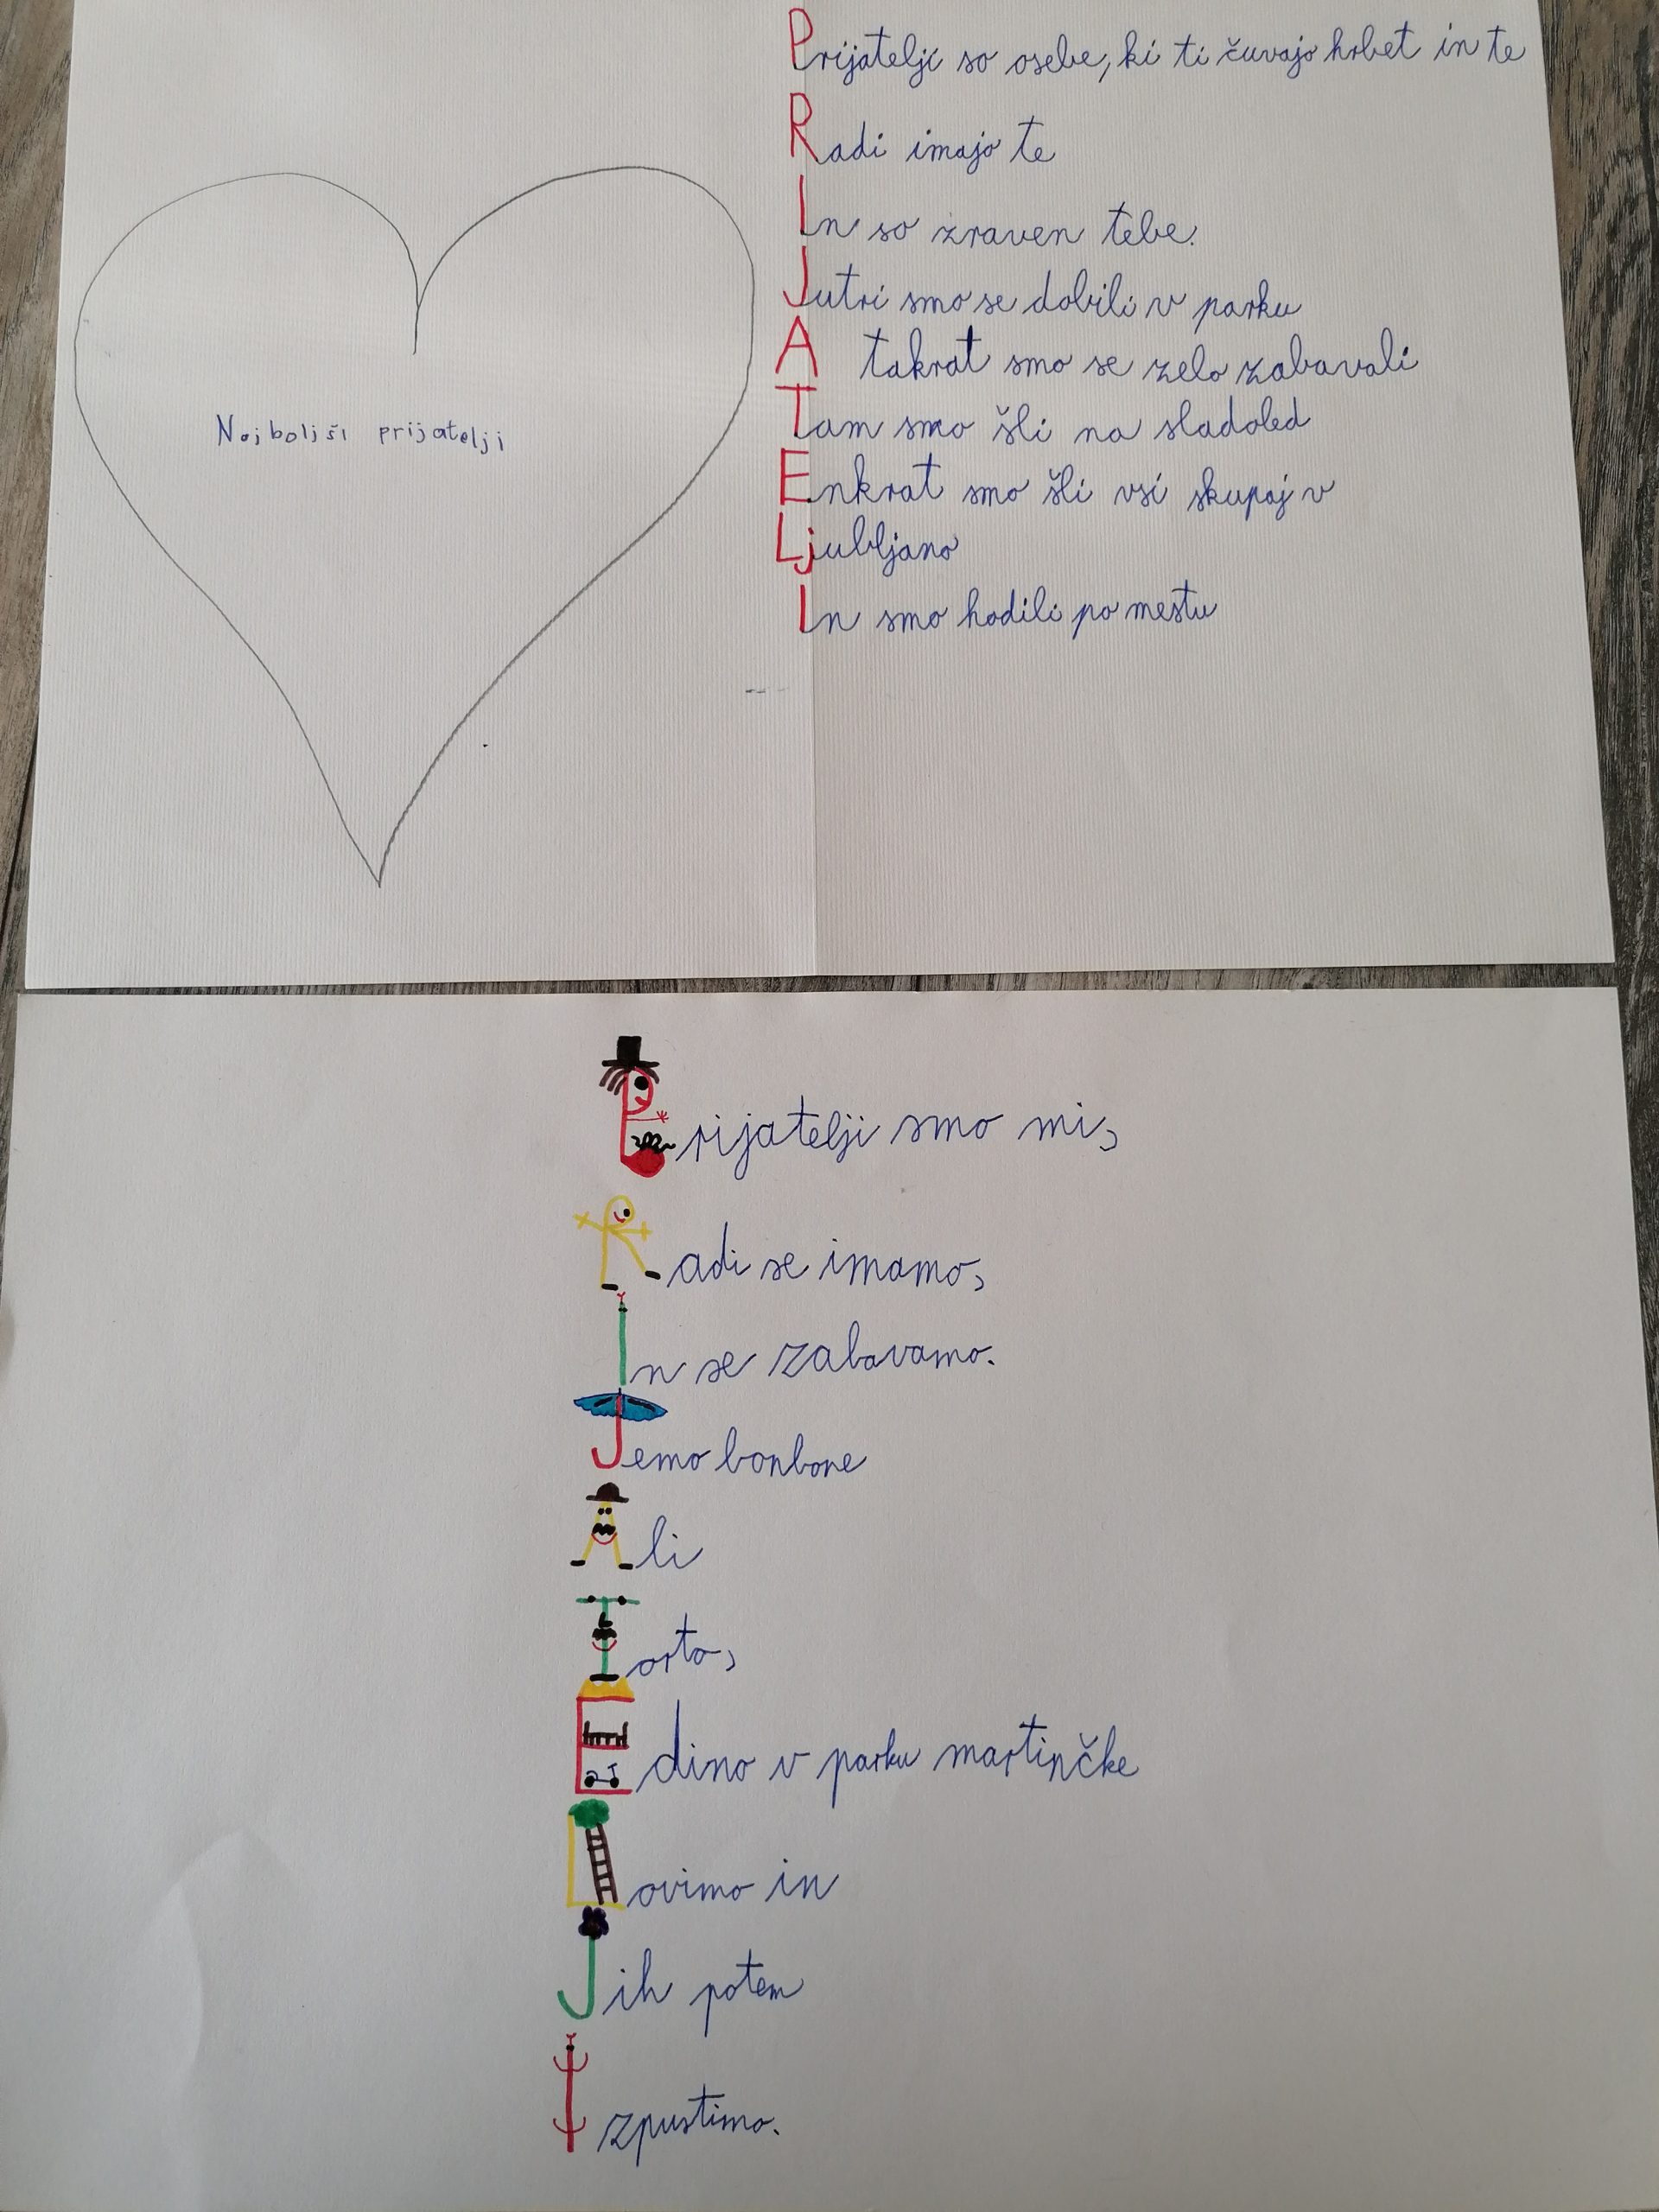 Najboljši prijatelji
Prijatelji so osebe, ki ti čuvajo hrbet in te
Radi imajo te
In so zraven tebe.
Jutri smo se dobili v parku
A takrat smo se zelo zabavali
Tam smo šli na sladoled
Enkrat smo šli vsi skupaj v
Ljubljano
In smo hodili po mestu
Prijatelji smo mi,
Radi se imamo,
In se zabavamo.
Jemo bonbone
Ali
Torto,
Edino v parku martinčke
Lovimo in
Jih potem
Izpustimo.